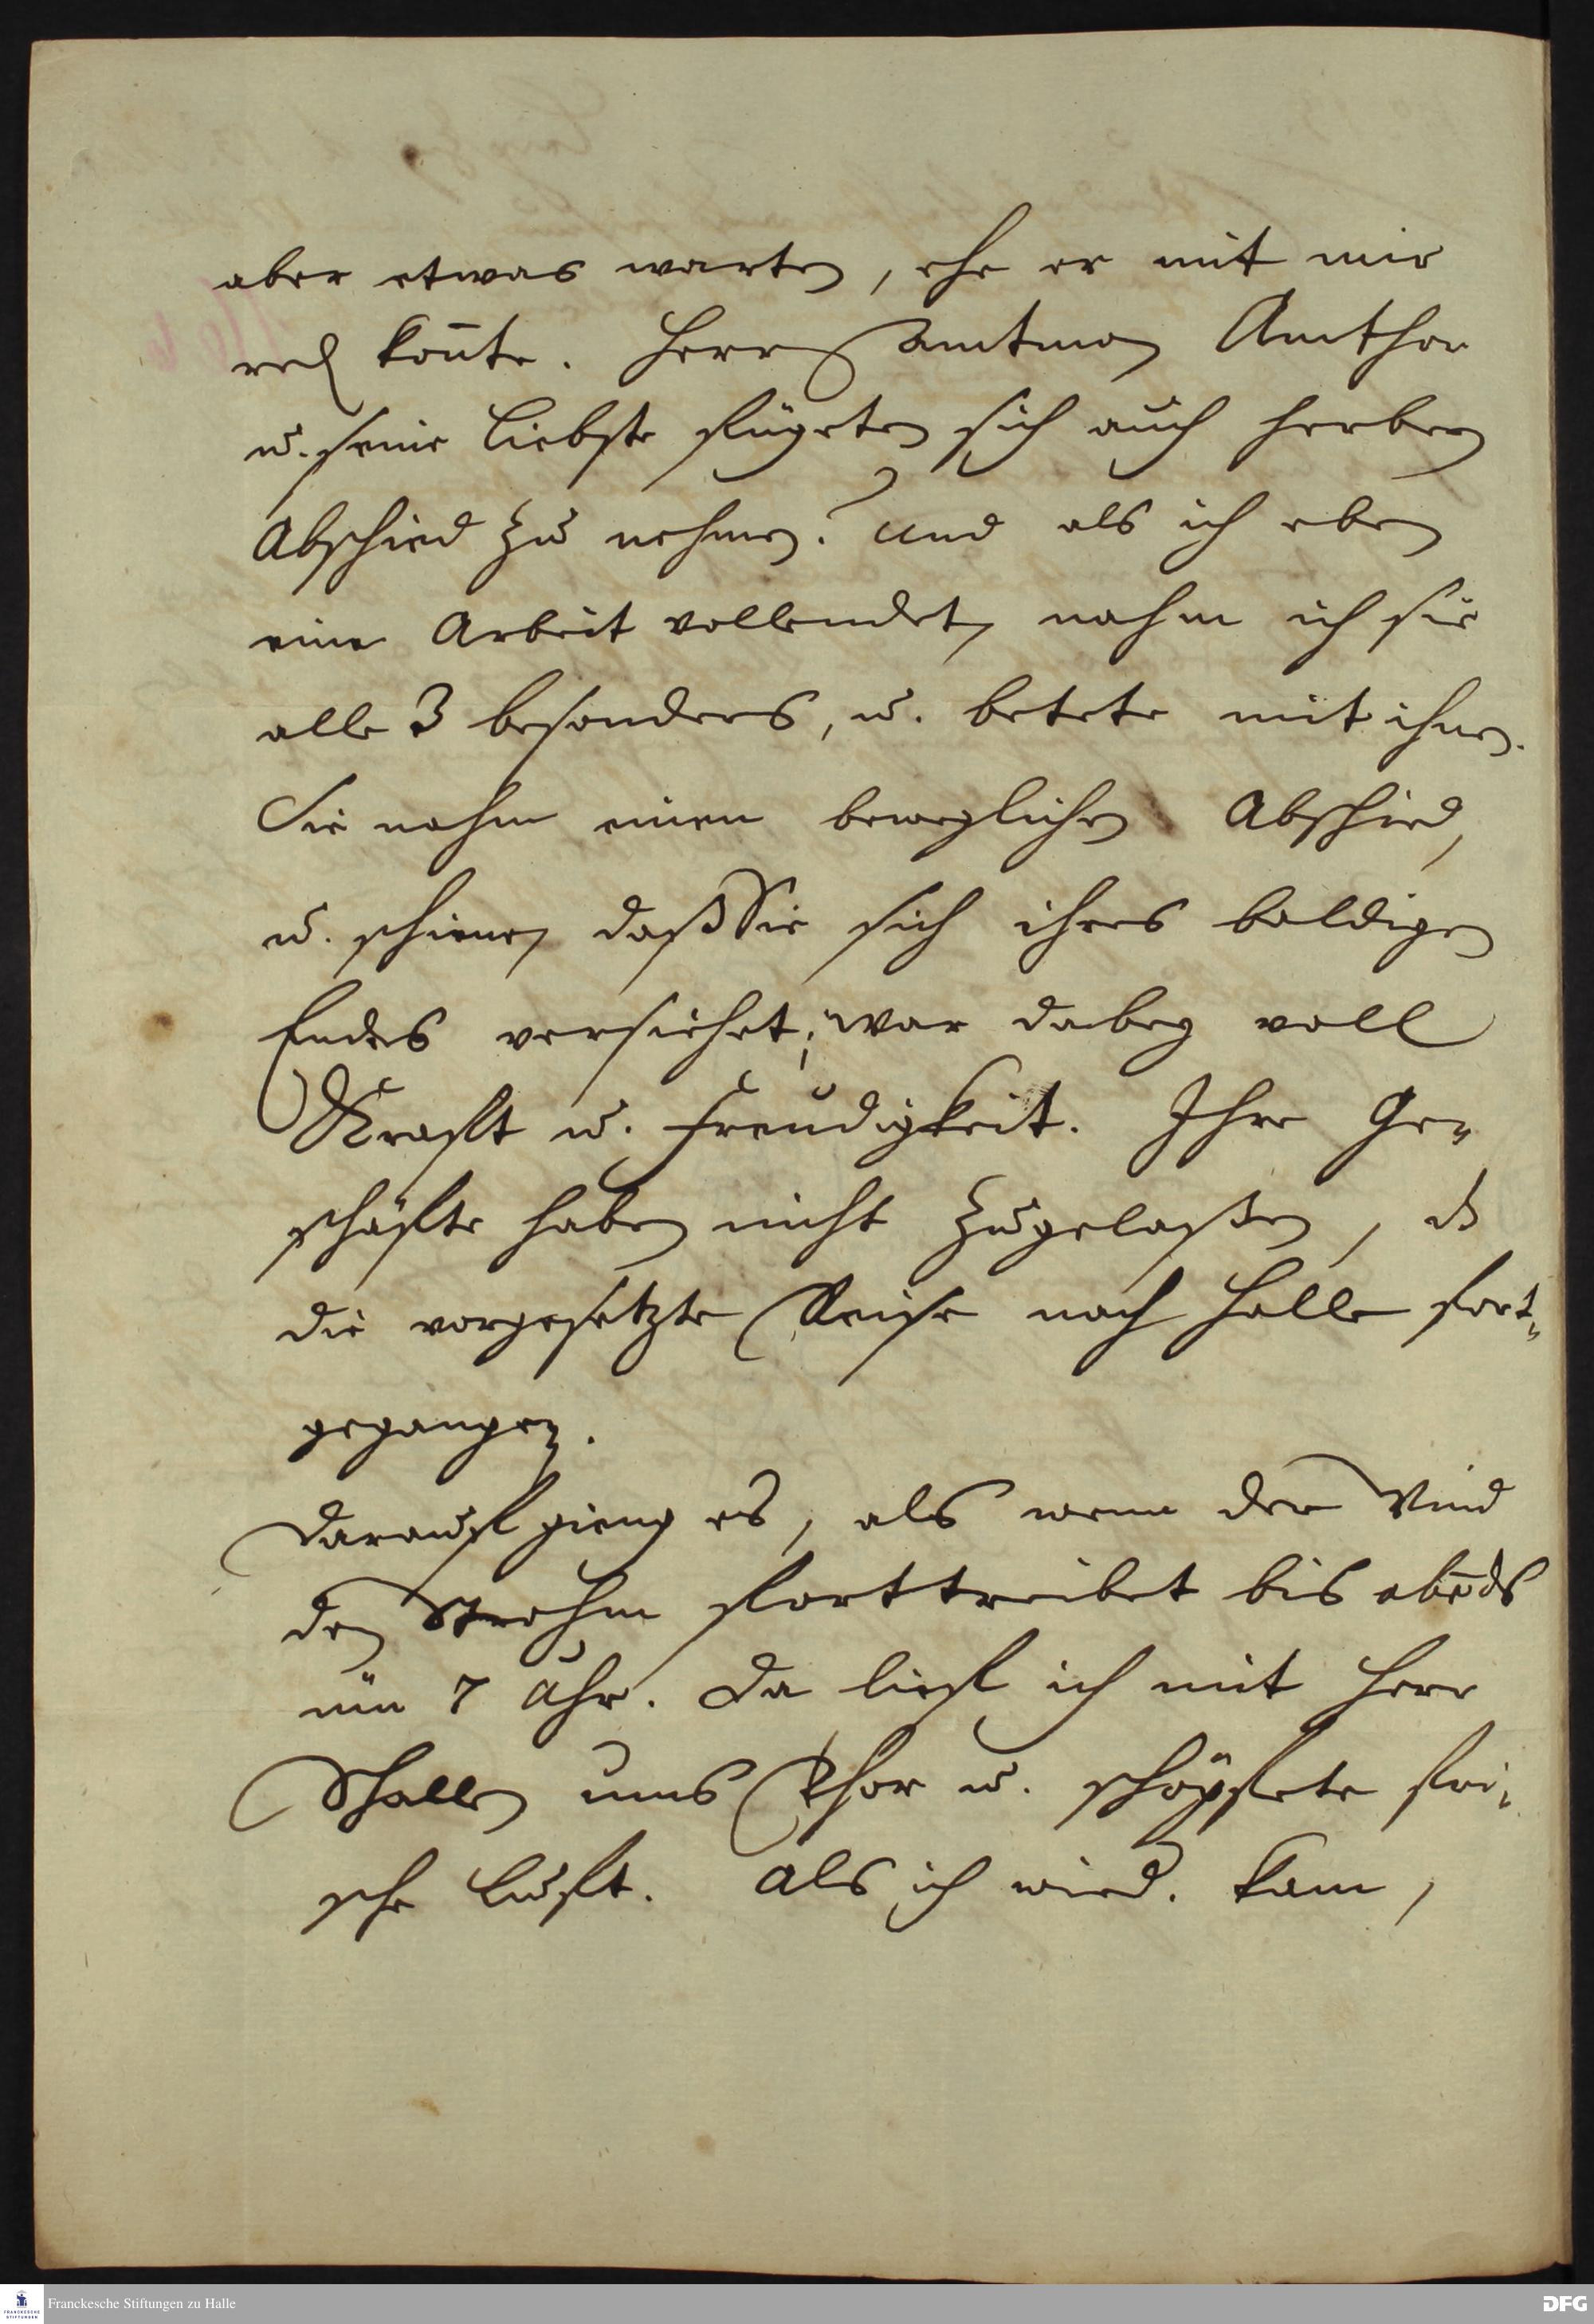 aber etwas warten, ehe er mit mir
red kon̄te. Herr Amtman Amthor
u. seine Liebste fügeten sich auch herbey
Abschied zu nehmen. Und als ich eben
eine Arbeit vollendet, nahm ich sie
alle 3 besonders, u. betete mit ihnen.
Sie nahm einen beweglichen Abschied,
u. schiene, daß Sie sich ihres baldigen
Endes versiehet; war dabey voll
Krafft u. Freudigkeit. Ihre Ge-
schäffte haben nicht zugelaßen, dß
die vorgesetzte Reise nach Halle fort-
gegangen.
Darauff gieng es, als wenn der Wind
den Strohm forttreibet bis abends
um̄ 7 Uhr. Da lieff ich mit Herr
Schallen ums Thor u. schöpffete fri-
sche Lufft. Als ich wied. kam,
Franckesche Stiftungen zu Halle
DFG